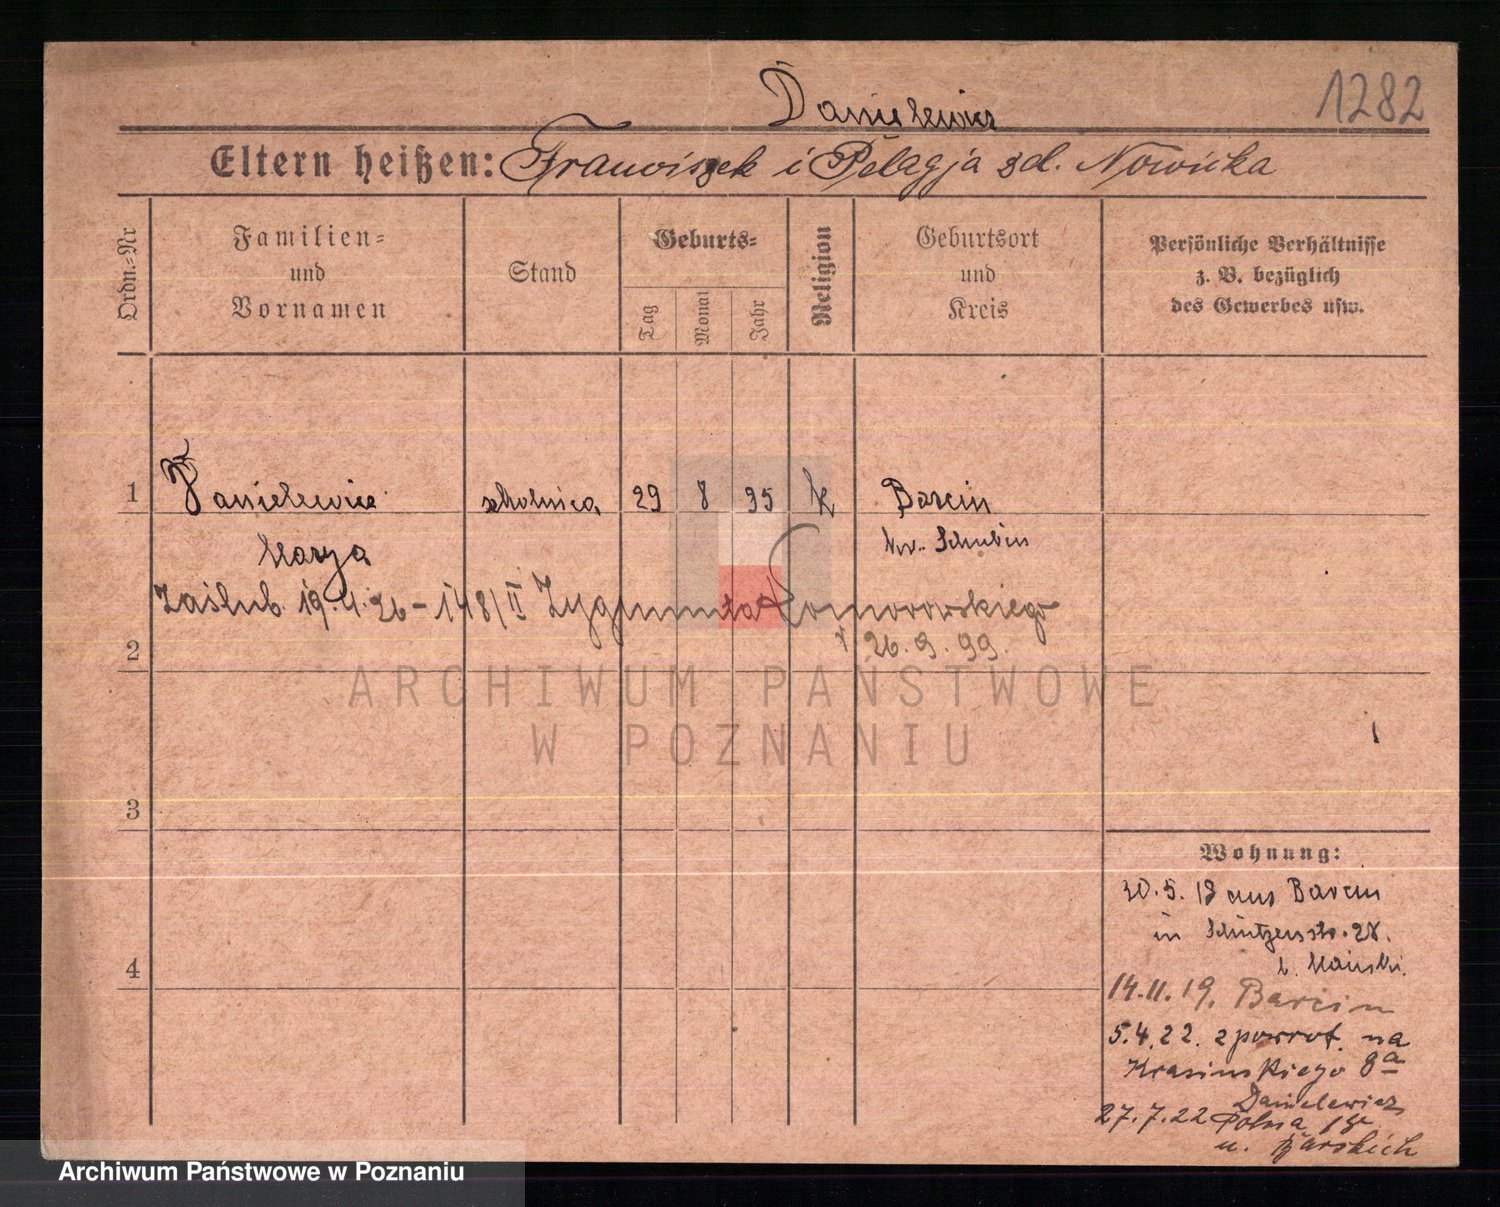 Danielewicz
1282
Eltern heißen: Franciszek i Pelagja zd. Nowicka
Ordn.-Nr
Familien-
und
Vornamen
Stand
Geburts-
Tag
Monat
Jahr
Religion
Geburtsort
und
Kreis
Persönliche Verhältnisse
z. B. bezüglich
des Gewerbes usw.
1 Danielewicz 29 8 95 k Barcin
Marja Schubin
Zaślub. 19.4.26 - 148/II Zygmunta Komorowskiego
26.9.99.
2
ARCHIWUM PAŃSTWOWE
W POZNANIU
3
Wohnung:
30.5.18 aus Barcin
in Schützenstr. 28.
b.
4
14.11.19. Barcin
5.4.22. z powrot. na
Krasinskiego 8a
Danielewicz
27.7.22 Polna
u. Żarskich
Archiwum Państwowe w Poznaniu